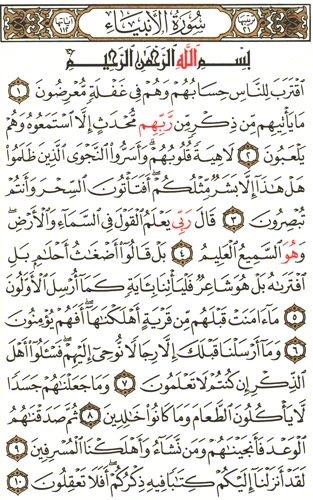 ترتيبها ٢١ سُورَةُ الأَنبِيَاءِ آياتها ١١٢
بِسْمِ ٱللَّهِ ٱلرَّحْمَٰنِ ٱلرَّحِيمِ
ٱقْتَرَبَ لِلنَّاسِ حِسَابُهُمْ وَهُمْ فِي غَفْلَةٍ مُّعْرِضُونَ ١
مَا يَأْتِيهِم مِّن ذِكْرٍ مِّن رَّبِّهِم مُّحْدَثٍ إِلَّا ٱسْتَمَعُوهُ وَهُمْ
يَلْعَبُونَ ٢ لَاهِيَةً قُلُوبُهُمْ ۗ وَأَسَرُّوا۟ ٱلنَّجْوَى ٱلَّذِينَ ظَلَمُوا۟
هَلْ هَٰذَآ إِلَّا بَشَرٌ مِّثْلُكُمْ ۖ أَفَتَأْتُونَ ٱلسِّحْرَ وَأَنتُمْ
تُبْصِرُونَ ٣ قَالَ رَبِّي يَعْلَمُ ٱلْقَوْلَ فِي ٱلسَّمَآءِ وَٱلْأَرْضِ ۖ
وَهُوَ ٱلسَّمِيعُ ٱلْعَلِيمُ ٤ بَلْ قَالُوٓا۟ أَضْغَٰثُ أَحْلَٰمٍۭ بَلِ
ٱفْتَرَىٰهُ بَلْ هُوَ شَاعِرٌ فَلْيَأْتِنَا بِـَٔايَةٍ كَمَآ أُرْسِلَ ٱلْأَوَّلُونَ
٥ مَآ ءَامَنَتْ قَبْلَهُم مِّن قَرْيَةٍ أَهْلَكْنَٰهَآ ۖ أَفَهُمْ يُؤْمِنُونَ
٦ وَمَآ أَرْسَلْنَا قَبْلَكَ إِلَّا رِجَالًا نُّوحِيٓ إِلَيْهِمْ ۖ فَسْـَٔلُوٓا۟ أَهْلَ
ٱلذِّكْرِ إِن كُنتُمْ لَا تَعْلَمُونَ ٧ وَمَا جَعَلْنَٰهُمْ جَسَدًا
لَّا يَأْكُلُونَ ٱلطَّعَامَ وَمَا كَانُوا۟ خَٰلِدِينَ ٨ ثُمَّ صَدَقْنَٰهُمُ
ٱلْوَعْدَ فَأَنجَيْنَٰهُمْ وَمَن نَّشَآءُ وَأَهْلَكْنَا ٱلْمُسْرِفِينَ ٩
لَقَدْ أَنزَلْنَآ إِلَيْكُمْ كِتَٰبًا فِيهِ ذِكْرُكُمْ ۖ أَفَلَا تَعْقِلُونَ ١٠